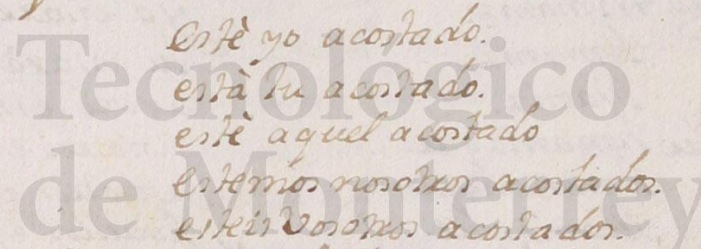 Estè yo acostado.
està tu acostado.
estè aquel acostado
estemos nosotros acostados.
esteis Vosotros acostados.
Tecnológico
de Monterrey